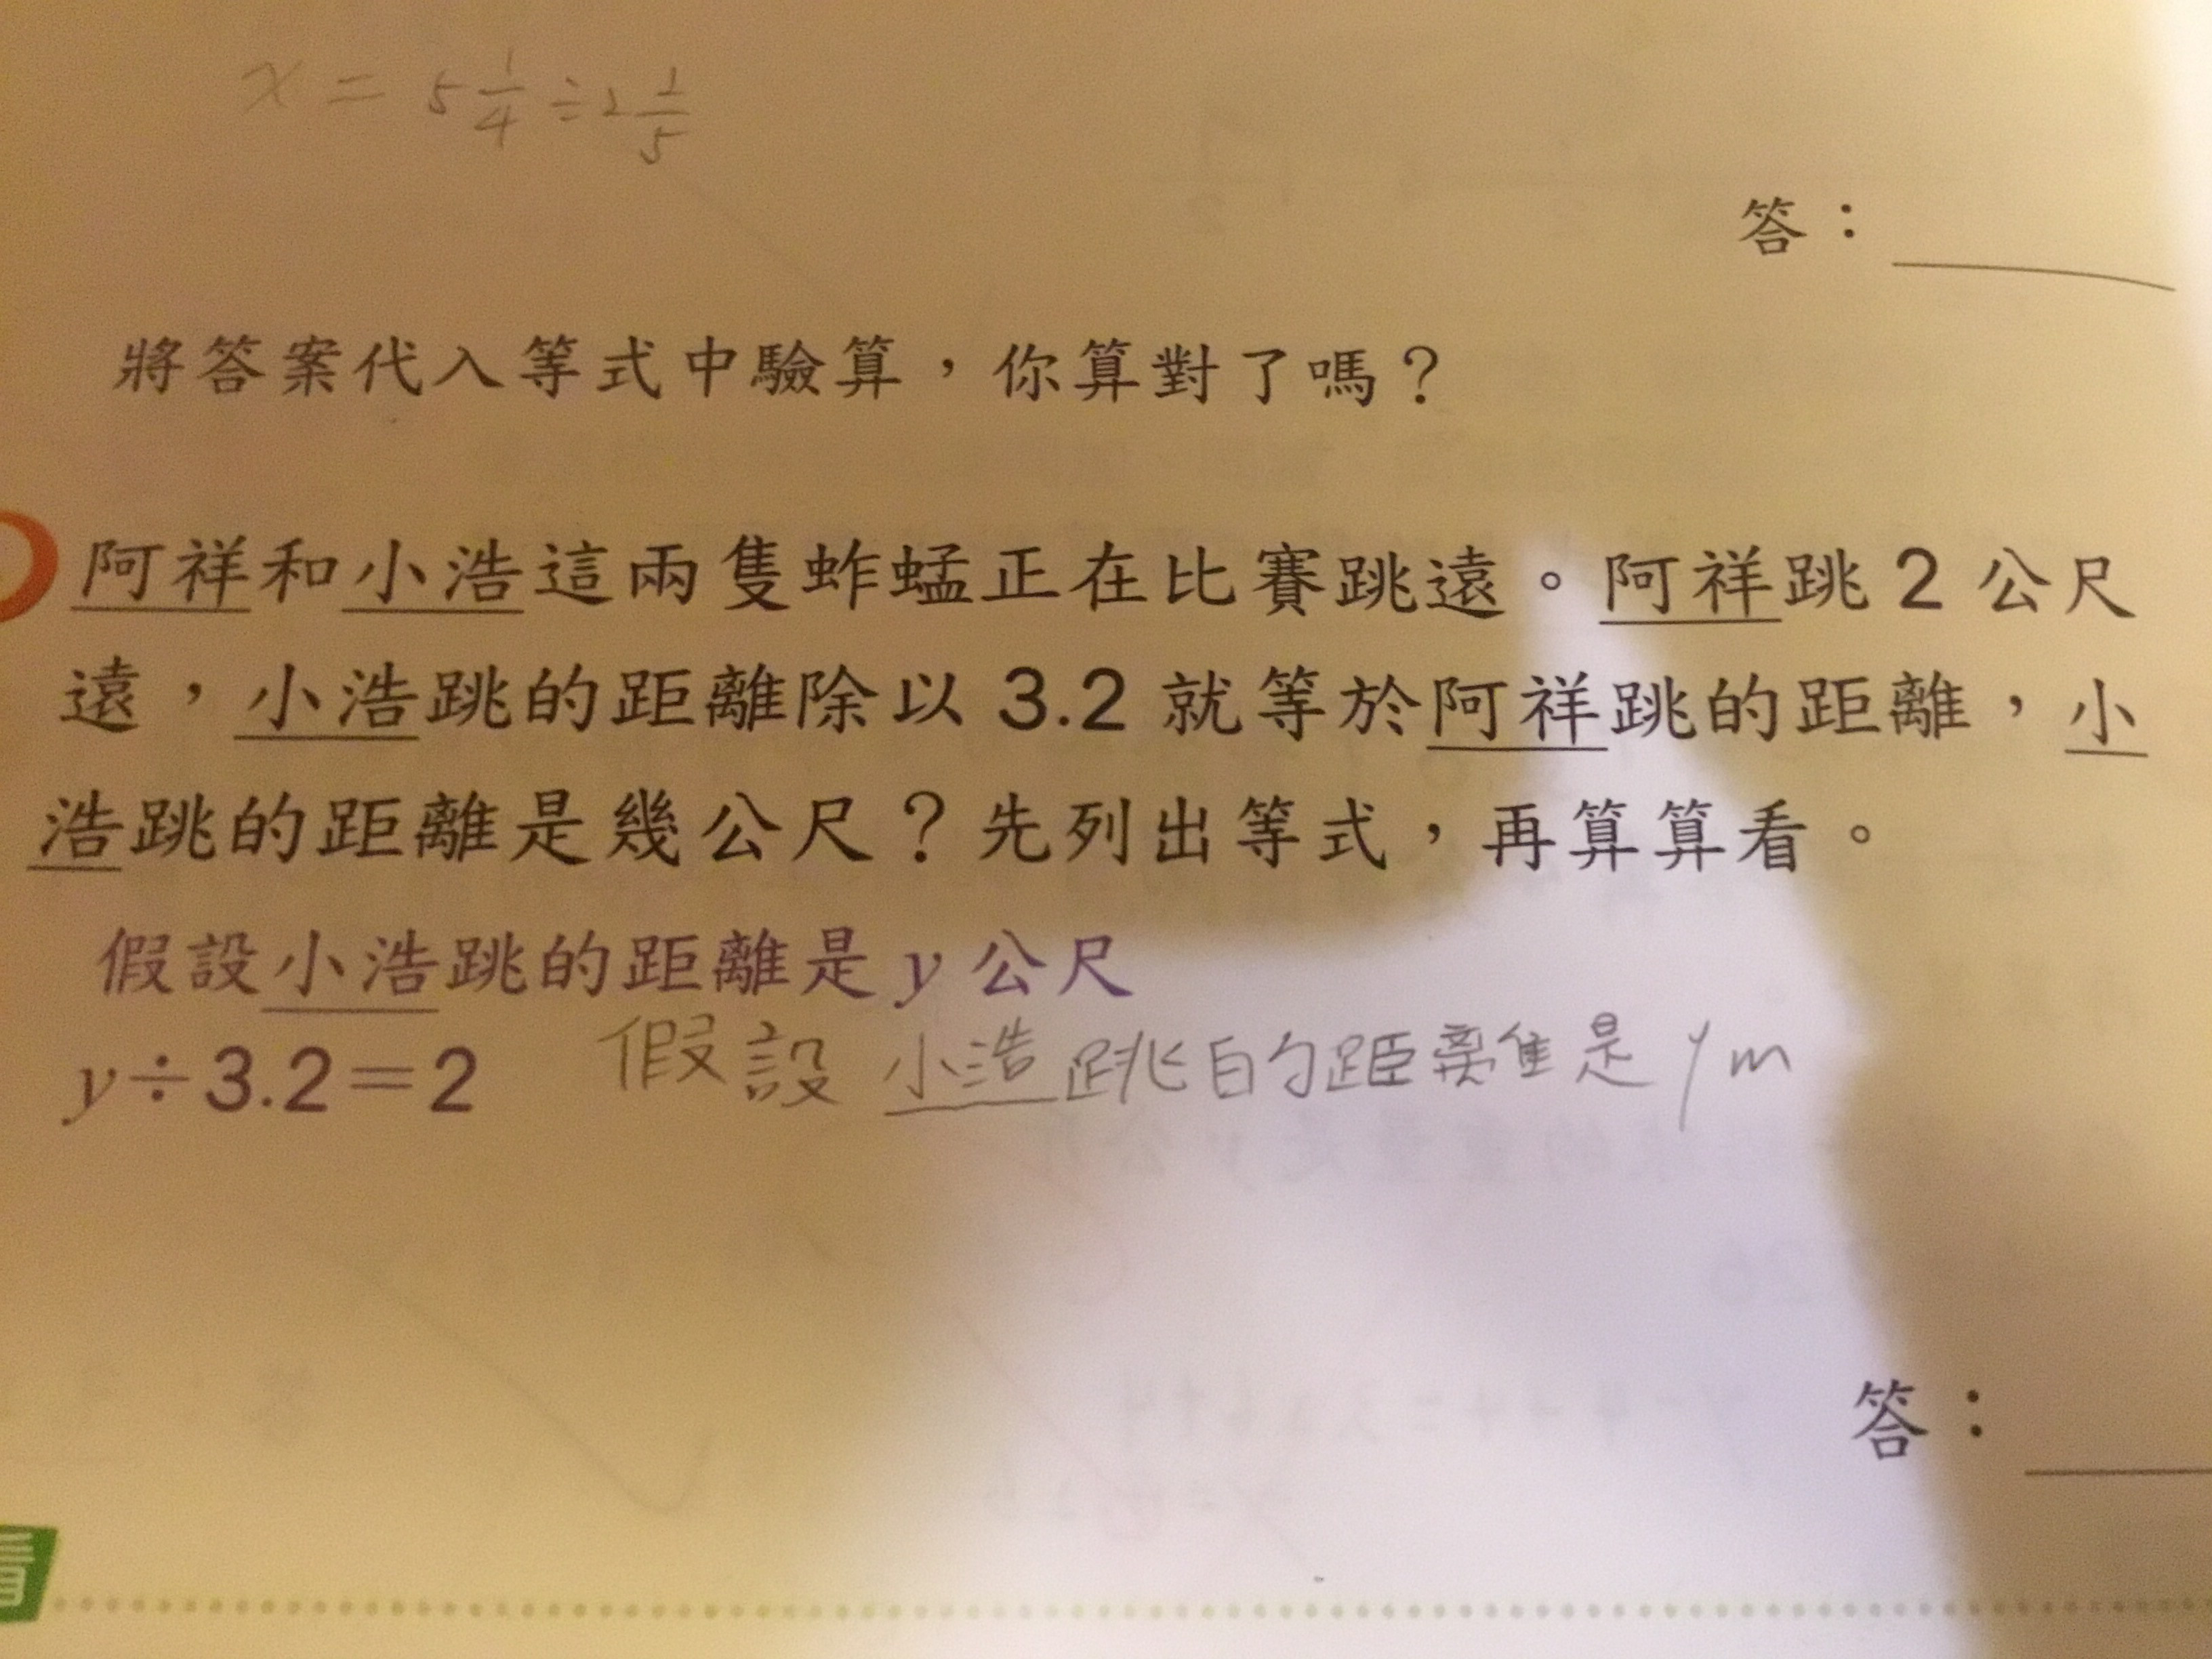 x = 5 1/4 ÷ 2 1/5
答：
將答案代入等式中驗算，你算對了嗎？
阿祥和小浩這兩隻蚱蜢正在比賽跳遠。阿祥跳 2 公尺
遠，小浩跳的距離除以 3.2 就等於阿祥跳的距離，小
浩跳的距離是幾公尺？先列出等式，再算算看。
假設小浩跳的距離是 y 公尺
y÷3.2＝2 假設小浩跳的距離是 y m
答：